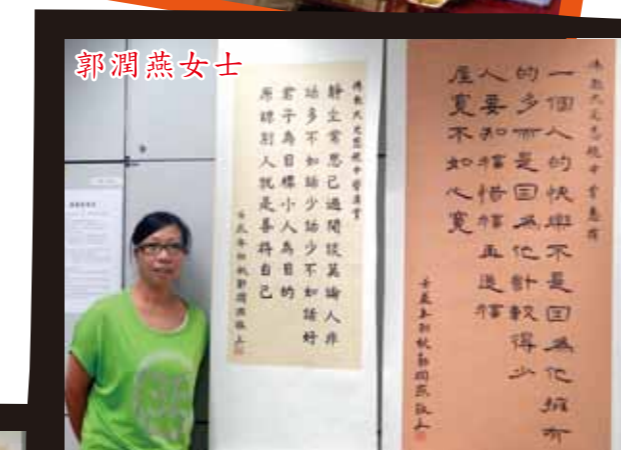 郭潤燕女士
佛教大光慈航中學
靜坐常思己過閒談莫論人非
話多不如話少話少不如話好
君子為目標小人為目的
原諒別人就是善待自己
壬辰年初秋郭潤燕敬上
佛教大光慈航中學惠存
一個人的快樂不是因為他擁有
的多而是因為他計較得少
人要知福惜福再造福
屋寬不如心寬
壬辰年初秋郭潤燕敬上